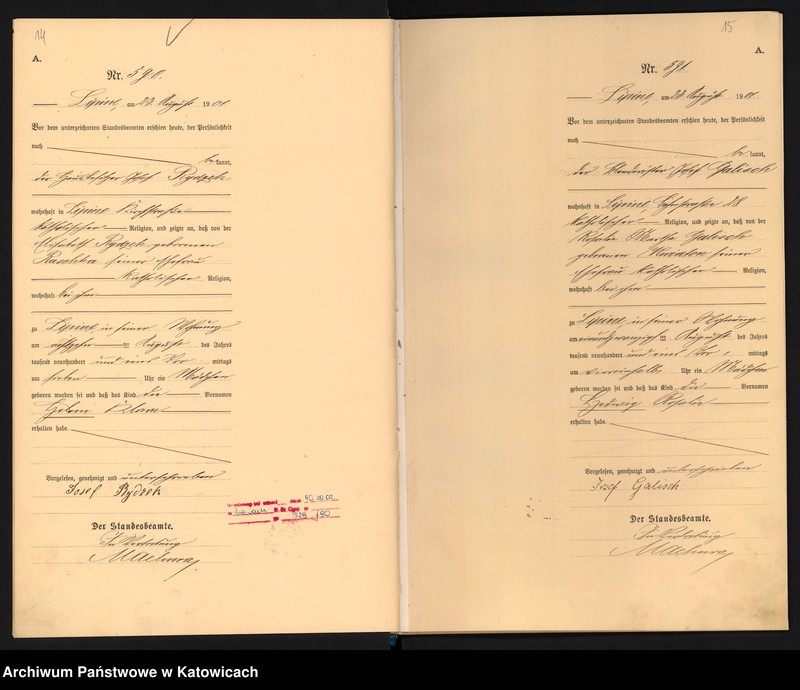 14
A.
Nr. 590.
Lipine, am 22. August 1901.
Vor dem unterzeichneten Standesbeamten erschien heute, der Persönlichkeit
nach
be kannt,
der Hausbesitzer Josef Rydzek
wohnhaft in Lipine, Kirchstraße
katholischer Religion, und zeigte an, daß von der
Elisabeth Rydzek geborenen
Raschka seiner Ehefrau
katholischer Religion,
wohnhaft bei ihm
zu Lipine, in seiner Wohnung
am ten August des Jahres
tausend neunhundert und eins Vor mittags
um sieben Uhr ein Mädchen
geboren worden sei und daß das Kind die Vornamen
Helene Klara
erhalten habe.
Vorgelesen, genehmigt und unterschrieben
Josef Rydzek
Der Standesbeamte.
In Vertretung
15
A.
Nr. 591.
Lipine, am 22. August 1901.
Vor dem unterzeichneten Standesbeamten erschien heute, der Persönlichkeit
nach
be kannt,
der Josef Galisch
wohnhaft in Lipine, 28
katholischer Religion, und zeigte an, daß von der
Rosalie Martha Galisch
geborenen seiner
Ehefrau katholischer Religion,
wohnhaft bei ihm
zu Lipine, in seiner Wohnung
am einundzwanzigsten August des Jahres
tausend neunhundert und eins Vor mittags
um Uhr ein Mädchen
geboren worden sei und daß das Kind die Vornamen
Hedwig Rosalie
erhalten habe.
Vorgelesen, genehmigt und unterschrieben
Josef Galisch
Der Standesbeamte.
In Vertretung
Archiwum Państwowe w Katowicach